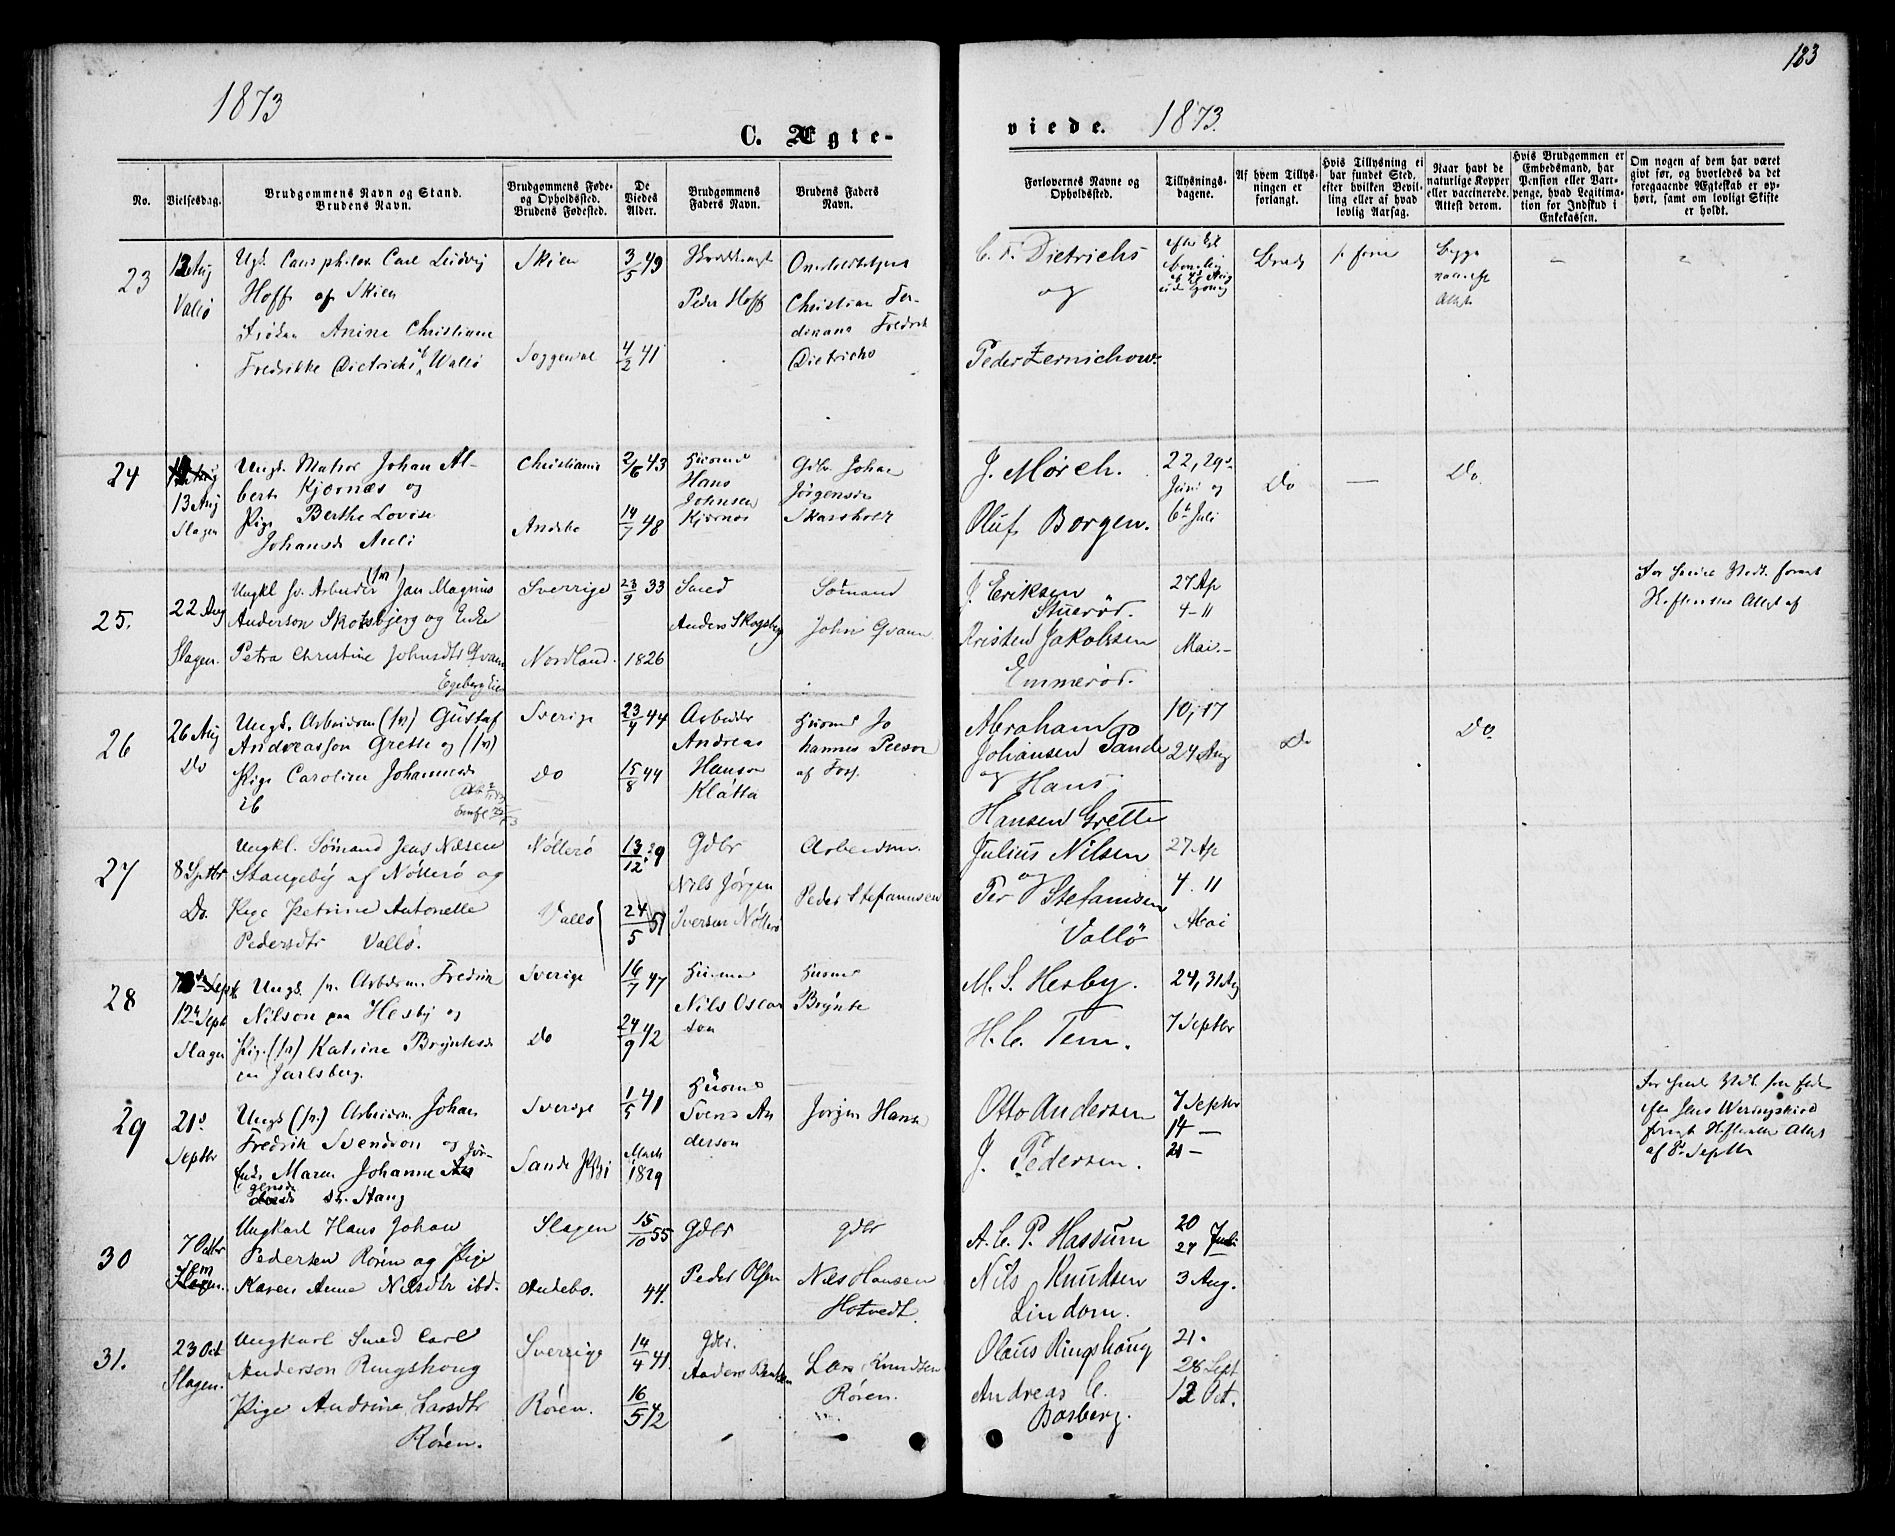 183
1873
C. Ægte-
viede. 1873.
No.
Vielsesdag.
Brudgommens Navn og Stand.
Brudens Navn.
Brudgommens Føde-
og Opholdssted.
Brudens Fødested.
De
Viedes
Alder.
Brudgommens
Faders Navn.
Brudens Faders
Navn.
Forlovernes Navne og
Opholdssted.
Tillysnings-
dagene.
Af hvem Tillys-
ningen er
forlangt.
Hvis Tillysning ei
har fundet Sted,
efter hvilken Bevil-
ling eller af hvad
lovlig Aarsag.
Naar havt de
naturlige Kopper
eller vaccinerede.
Attest derom.
Hvis Brudgommen er
Embedsmand, har
Pension eller Var-
penge, hvad Legitima-
tion for Indskud i
Enkekassen.
Om nogen af dem har været
givt før, og hvorledes da det
foregaaende Ægteskab er op-
hørt, samt om lovligt Skifte
er holdt.
23
12 Aug
Vallø
Ugk. Cand philos Carl Ludvig
Hoff af Skien
Frøken Anine Christiane
Fredrikke Dietrichs af Wallø
Skien
Soggendal
3/5 49
4/2 41
Peder Hoff
Christian Fer-
dinand Fredrik
Dietrichs
C. F. Dietrichs
og
Peder Zernichow.
Brudg
24
13 Aug
Slagen
Ungk. Matros Johan Al-
bert Kjørnæs og
Pige Berthe Lovise
Johansd Auli
Christiania
Andebo
2/6 43
14/7 48
Husmd
Hans
Johnsen
Kjørnæs
Gdbr Johan
Jørgensen
J. Mørch.
Oluf Borgen.
22, 29de
Juni og
6te Juli
Do
—
Do
25.
22 Aug
Slagen.
Ungkl sv. Arbeider (fr) Jan Magnus
Anderson Skotsbjerg og Enke
Petra Christine Johnsdtr Qvam
Egeberg Eie
Sverrige
Nordland.
23/9 33
1826
Smed
Anders Skogsberg
Sømand
John Qvam
J. Eriksen
Stuerød.
Kristen Jakobsen
Emmerød.
27 Ap
4-11
Mai.-
26
26 Aug
Do
Ungk. Arbeidsm (fr) Gustaf
Andreasson Grette og (fr)
Pige Caroline Johannesd
ib
Sverige
Do
23/4 44
15/8 44
Arbeider
Andreas
Hanson
Klatta
Husmd Jo
hannes Peerson
af Fors.
Abraham
Johansen Tande
og Hans
Hansen Grette
10, 17
24 Aug
Do
Do
27
8 Sptbr
Do.
Ungkl. Sømand Jens Nilsen
Stangeby af Nøtterø og
Pige Petrine Antonette
Pedersdtr Vallø.
Nøtterø
Vallø
13/12 29
24/5 51
Gdbr
Nils Jørgen
Iversen Nøtterø
Arbeidsm.
Peder Stefannsen
Julius Nilsen
og
Per Stefansen
Vallö
27 Ap
4. 11
Mai
28
12te Sept
Slagen
Ungk. fr. Arbdsm. Fredrik
Nilson paa Hesby og
Pige (fr) Katrine Bryntesd
en Jarlsberg.
Sverige
Do
16/7 47
24/9 42
Husmd
Nils Oscar
son
Husmd
Brynte
M. S. Hesby.
H. C. Tem.
24, 31 Aug
7 Septbr
29
21de
Septbr
Ungk (fr.) Arbeidsm. Johan
Fredrik Svendson og
Enke Maren Johanne Jør-
gensd
str. Stang
Sverige
Sande
1/5 41
March
1829
Husmd
Svend An
derson
Jørgen Hansen
Otto Andersen
J. Pedersen.
7 Septbr
14 —
21 —
30
7 Octbr
Sem
Ungkarl Hans Johan
Pedersen Røren og Pige
Karen Anne Nilsdtr ibd.
Slagen
Andebo.
15/10 55
44.
Gdbr
Peder Olsen
gdbr
Nils Hansen
Hotvedt.
A. C. P. Hassum
Nils Knudsen
Lindom.
20
27 Juli
3 Aug.
31.
23 Oct
Slagen.
Ungkarl Smed Carl
Anderson Ringshoug
Pige Andrine Larsdtr
Røren.
Sverrige
Røren.
14/4 41
16/5 42
Gdbr.
Lars Knudsen
Røren.
Olaus Ringshoug
Andreas C.
Basberg.
21.
28 Sept
12 Oct.